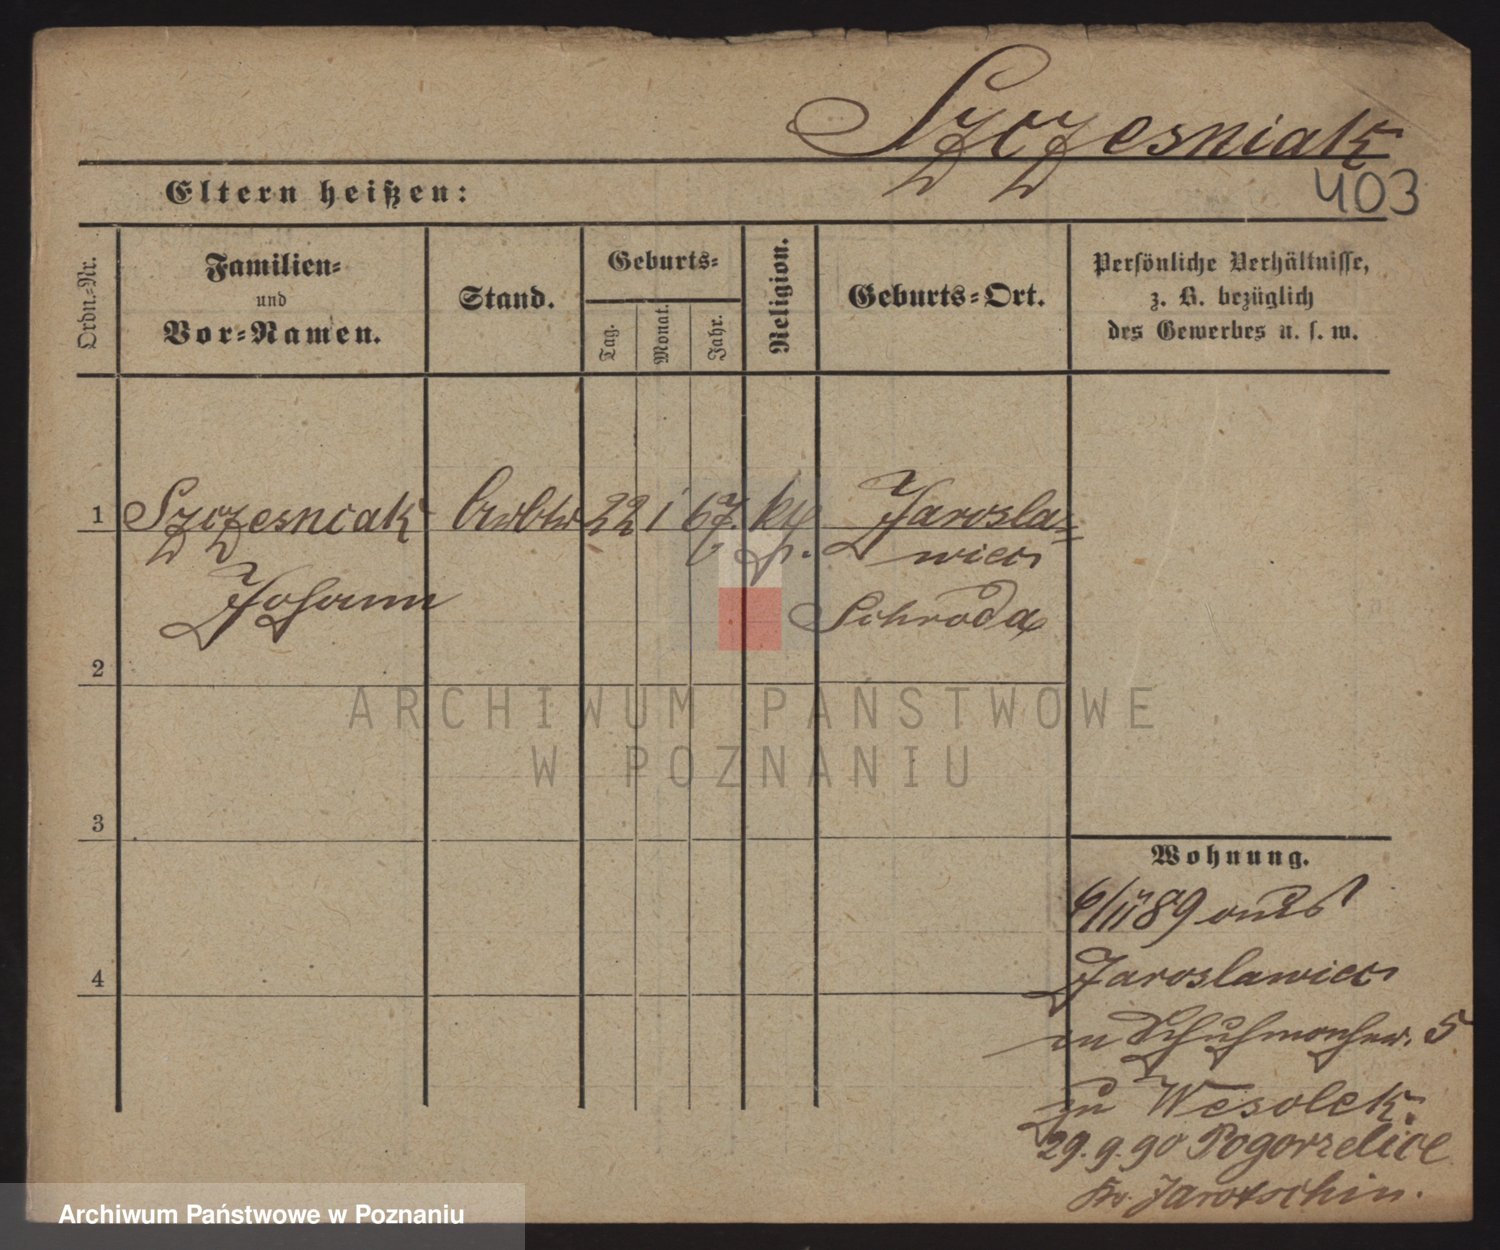 Szczesniak
403
Eltern heißen:
Ordn.-Nr.
Familien-
und
Vor-Namen.
Stand.
Geburts-
Tag.
Monat.
Jahr.
Religion.
Geburts-Ort.
Persönliche Verhältnisse,
z. B. bezüglich
des Gewerbes u. s. w.
1 Szczesniak 22 1 67. Jarosla-
wiec
Johann Schroda
2
3
4
ARCHIWUM PAŃSTWOWE
W POZNANIU
Wohnung.
6/11 89 aus
Jaroslawiec
5
zu Wesolek.
29.9.90 Pogorzelice
Kr. Jarotschin.
Archiwum Państwowe w Poznaniu